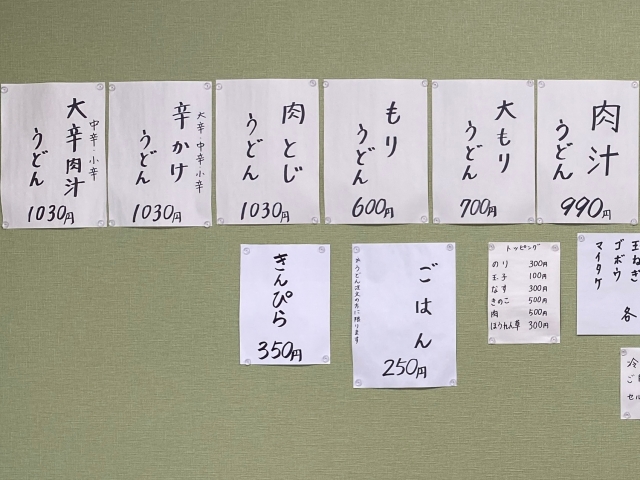 肉汁
うどん
990円
大もり
うどん
700円
もり
うどん
600円
肉とじ
うどん
1030円
大辛・中辛・小辛
辛かけ
うどん
1030円
中辛・小辛
大辛肉汁
うどん
1030円
玉ねぎ
ゴボウ
マイタケ
各
トッピング
のり 300円
玉子 100円
なす 300円
きのこ 500円
肉 500円
ほうれん草 300円
ごはん
※うどん注文の方に限ります
250円
きんぴら
350円
冷
ご
セル